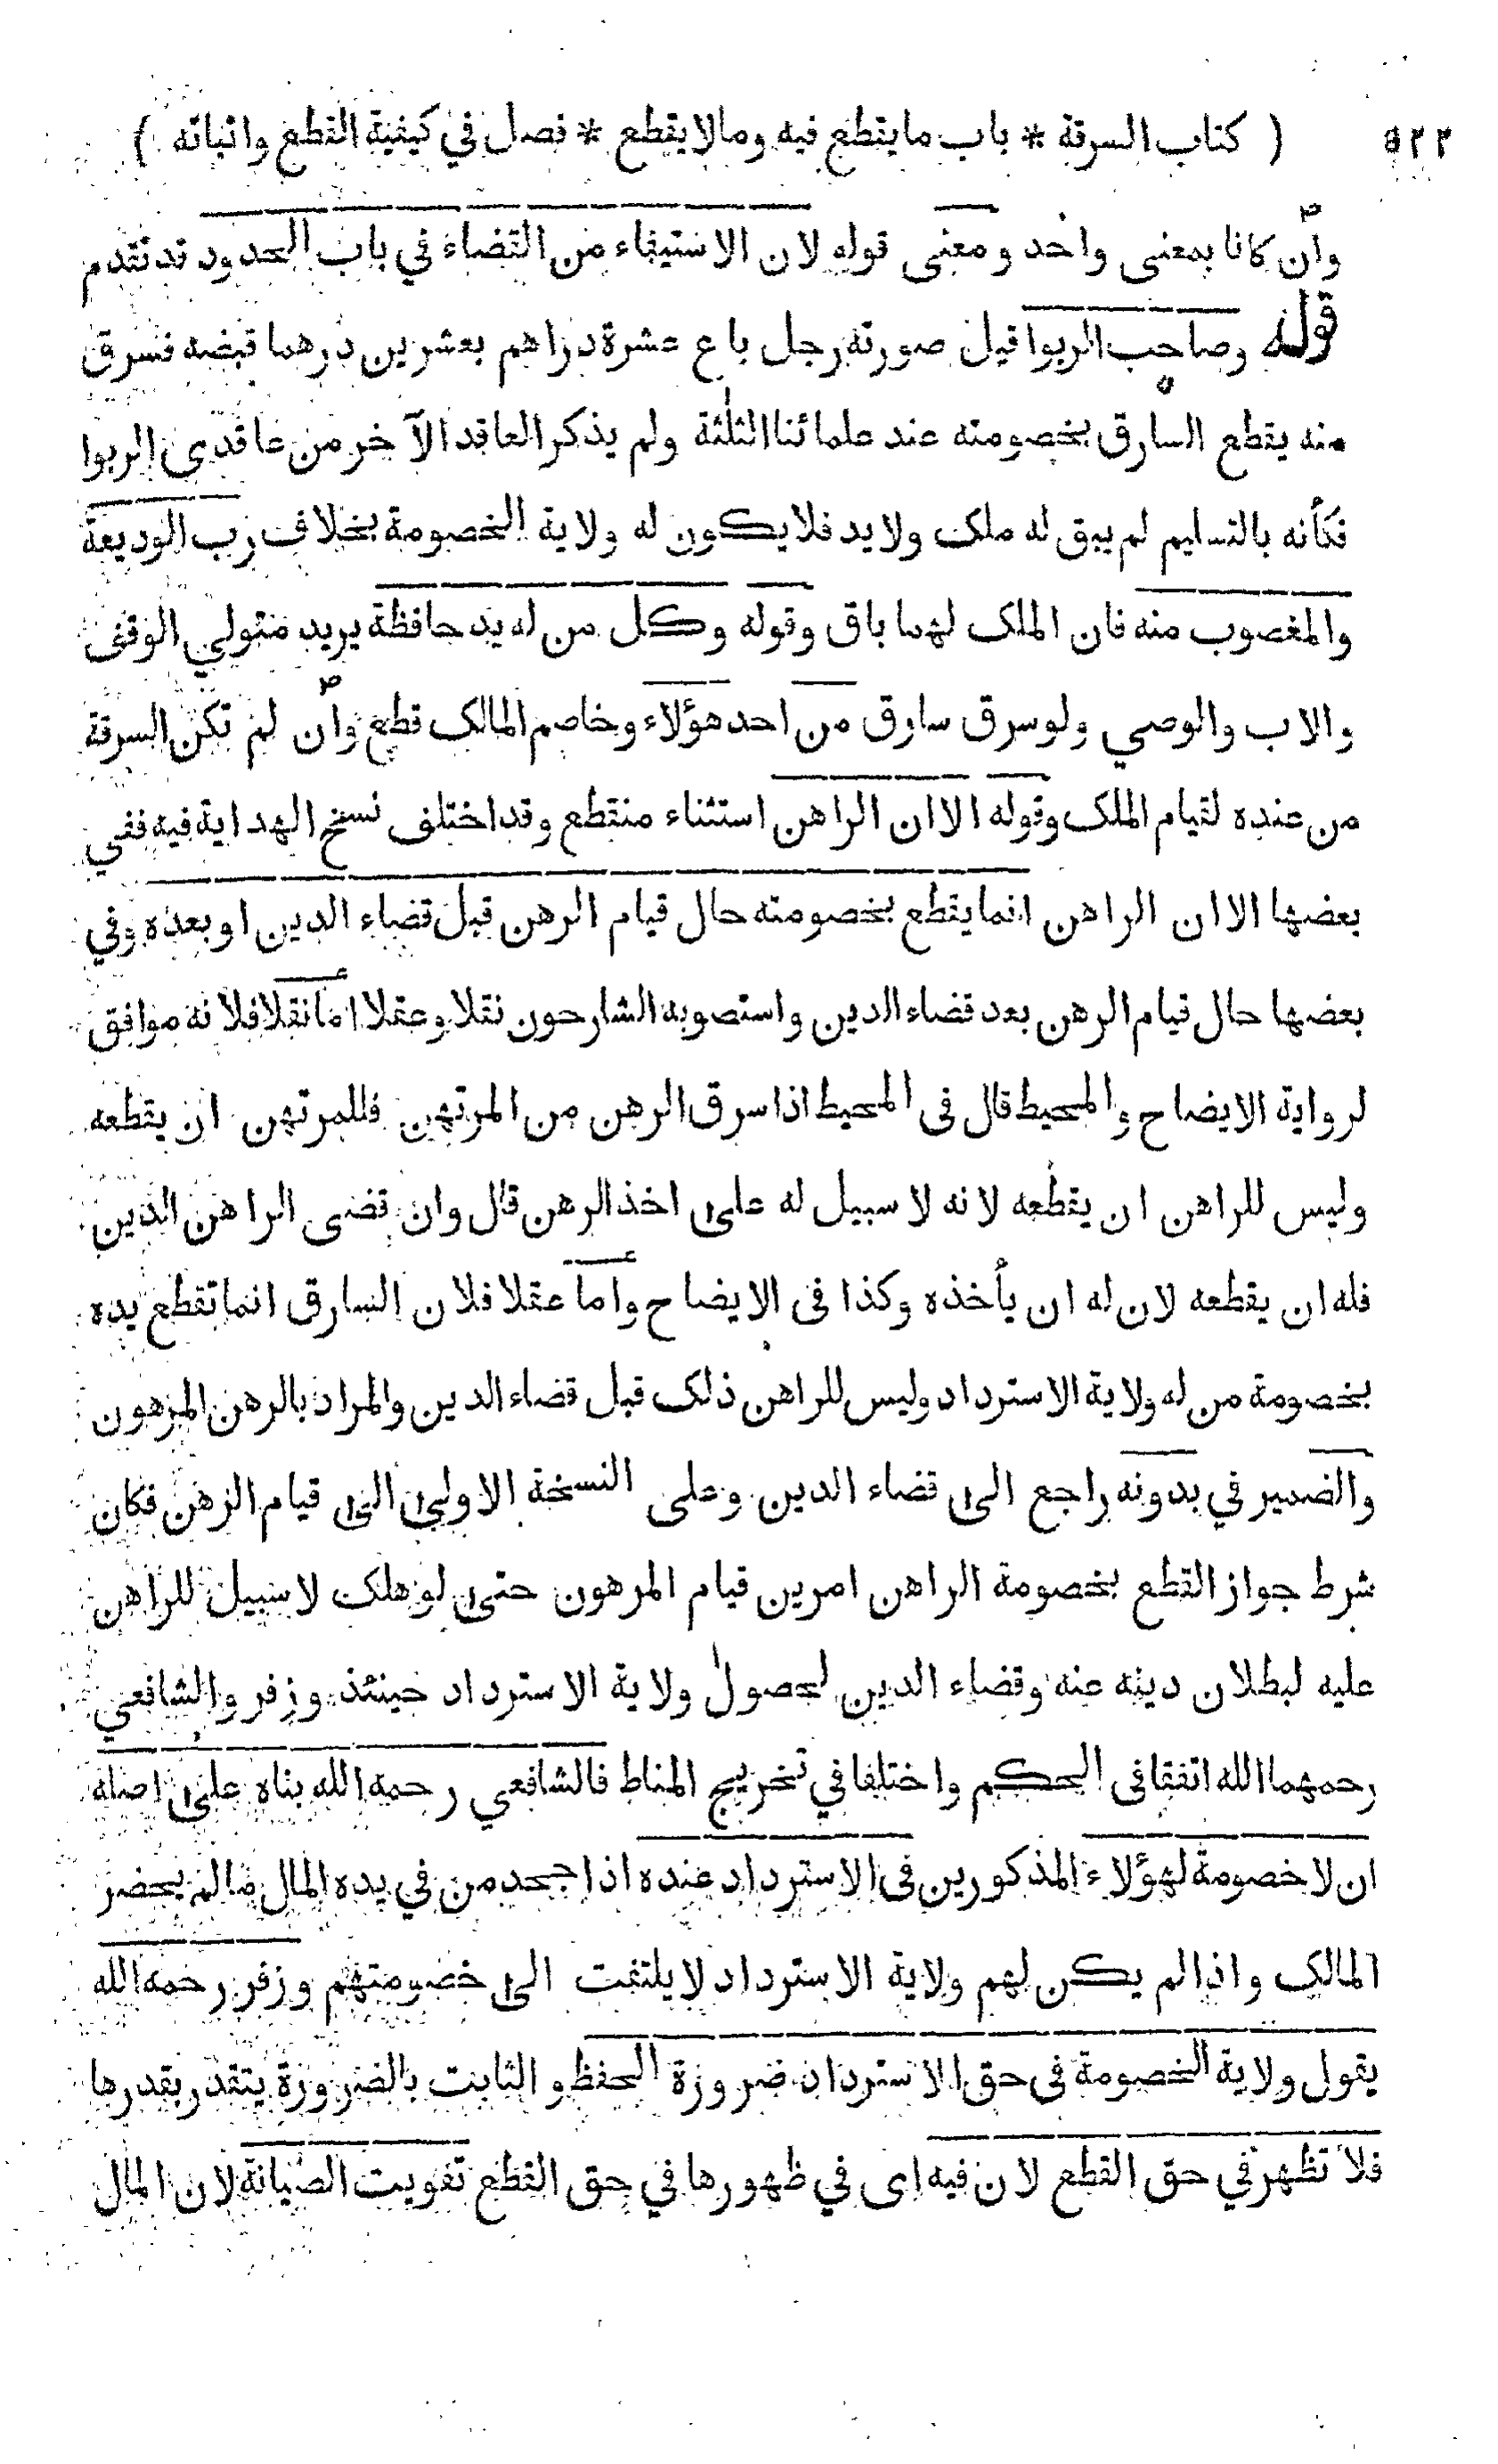 ٥٢٢ ( كتاب السرقة * باب ما يقطع فيه وما لا يقطع * فصل في كيفية القطع واثباته )
وان كانا بمعنى واحد ومعنى قوله لان الاستيفاء من القضاء في باب الحدود قد تقدم
قوله وصاحب الربوا قيل صورته رجل باع عشرة دراهم بعشرين درهما قبضه فسرق
منه يقطع السارق بخصومته عند علمائنا الثلثة ولم يذكر العاقد الآخر من عاقدى الربوا
فكأنه بالتسليم لم يبق له ملك ولا يد فلا يكون له ولاية الخصومة بخلاف رب الوديعة
والمغصوب منه فان الملك لهما باق وقوله وكل من له يد حافظة يريد متولي الوقف
والاب والوصي ولو سرق سارق من احد هؤلاء وخاصم المالك قطع وان لم تكن السرقة
من عنده لقيام الملك وقوله الا ان الراهن استثناء منقطع وقد اختلف نسخ الهداية فيه ففي
بعضها الا ان الراهن انما يقطع بخصومته حال قيام الرهن قبل قضاء الدين او بعده وفي
بعضها حال قيام الرهن بعد قضاء الدين واستصوبه الشارحون نقلا وعقلا اما نقلا فلانه موافق
لرواية الايضاح والمحيط قال فى المحيط اذا سرق الرهن من المرتهن فللمرتهن ان يقطعه
وليس للراهن ان يقطعه لانه لا سبيل له على اخذ الرهن قال وان قضى الراهن الدين
فله ان يقطعه لان له ان يأخذه وكذا فى الايضاح واما عقلا فلان السارق انما تقطع يده
بخصومة من له ولاية الاسترداد وليس للراهن ذلك قبل قضاء الدين والمراد بالرهن المرهون
والضمير في بدونه راجع الى قضاء الدين وعلى النسخة الاولى الى قيام الرهن فكان
شرط جواز القطع بخصومة الراهن امرين قيام المرهون حتى لو هلك لا سبيل للراهن
عليه لبطلان دينه عنه وقضاء الدين لحصول ولاية الاسترداد حينئذ وزفر والشافعي
رحمهما الله اتفقا فى الحكم واختلفا في تخريج المناط فالشافعي رحمه الله بناه على اصله
ان لا خصومة لهؤلاء المذكورين فى الاسترداد عنده اذا جحد من في يده المال مالم يحضر
المالك واذا لم يكن لهم ولاية الاسترداد لا يلتفت الى خصومتهم وزفر رحمه الله
يقول ولاية الخصومة فى حق الاسترداد ضرورة الحفظ و الثابت بالضرورة يتقدر بقدرها
فلا تظهر في حق القطع لان فيه اى في ظهورها في حق القطع تفويت الصيانة لان المال